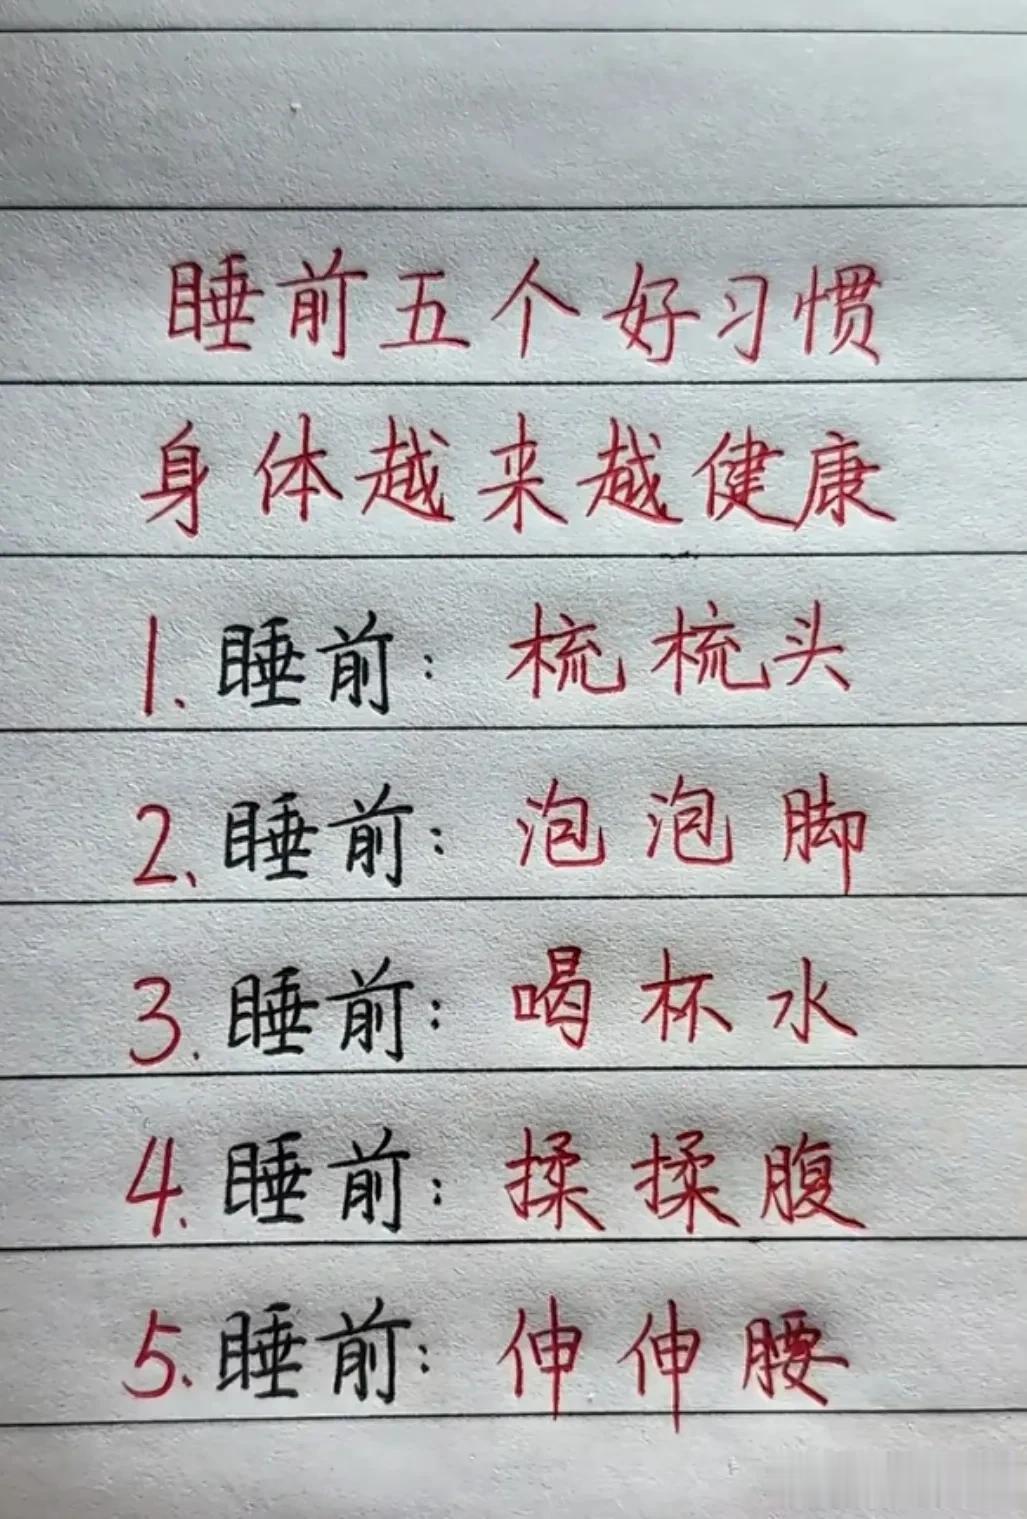 睡前五个好习惯
身体越来越健康
1.睡前:梳梳头
2.睡前:泡泡脚
3.睡前:喝杯水
4.睡前:揉揉腹
5.睡前:伸伸腰